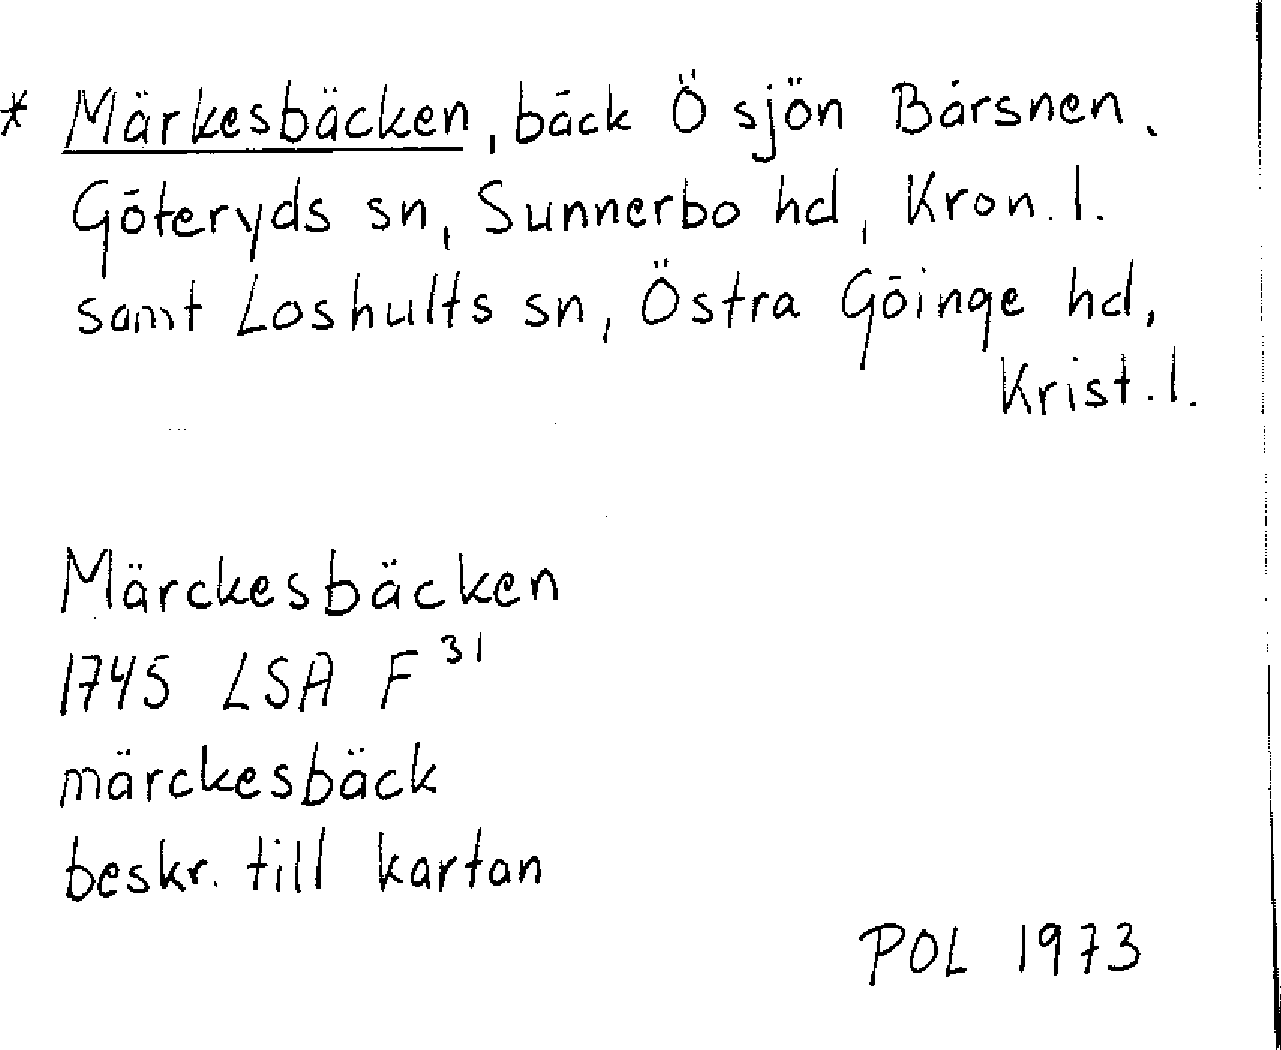 * Märkesbäcken, bäck Ö sjön Bårsnen.
Göteryds sn, Sunnerbo hd, Kron. l.
samt Loshults sn, Östra Göinge hd,
Krist. l.
Märckesbäcken
1745 LSA F 31
märckesbäck
beskr. till kartan
POL 1973